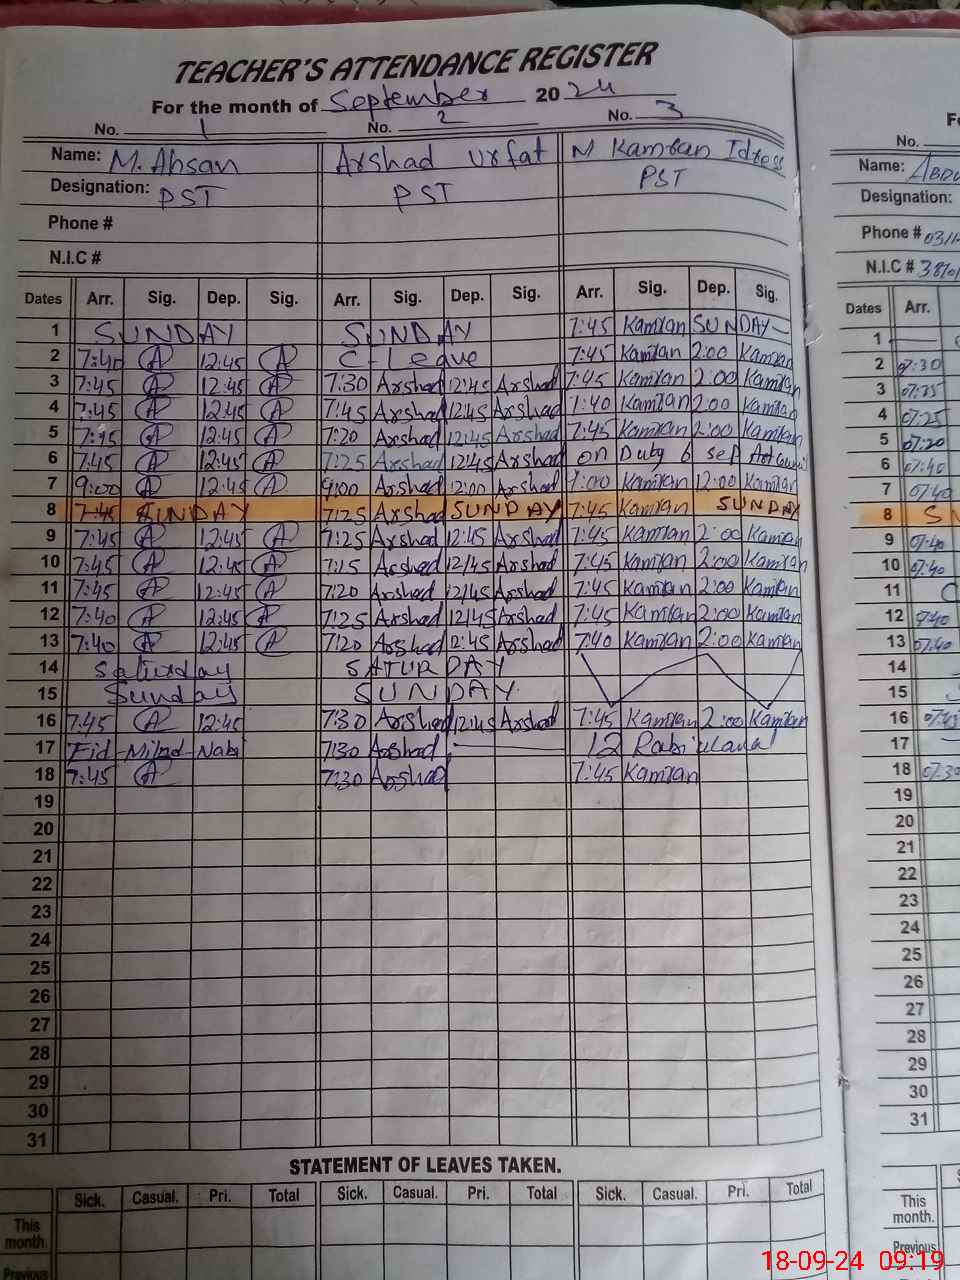 TEACHER'S ATTENDANCE REGISTER
For the month of September 20 24
No. 1 No. 2 No. 3
Name: M. Ahsan Arshad Urfat M Kamran Idress
Designation: PST PST PST
Phone #
N.I.C #
Dates Arr. Sig. Dep. Sig. Arr. Sig. Dep. Sig. Arr. Sig. Dep. Sig.
1 SUNDAY SUNDAY 7:45 Kamran SUNDAY
2 7:40 A 12:45 A C-Leave 7:45 Kamran 2:00 Kamran
3 7:45 A 12:45 A 7:30 Arshad 12:45 Arshad 7:45 Kamran 2:00 Kamran
4 7:45 A 12:45 A 7:45 Arshad 12:45 Arshad 7:40 Kamran 2:00 Kamran
5 7:45 A 12:45 A 7:20 Arshad 12:45 Arshad 7:45 Kamran 2:00 Kamran
6 7:45 A 12:45 A 7:25 Arshad 12:45 Arshad on Duty 6 sep
7 9:00 A 12:45 A 9:00 Arshad 12:00 Arshad 7:00 Kamran 12:00 Kamran
8 7:45 SUNDAY 7:25 Arshad SUNDAY 7:45 Kamran SUNDAY
9 7:45 A 12:45 A 7:25 Arshad 12:45 Arshad 7:45 Kamran 2:00 Kamran
10 7:45 A 12:45 A 7:15 Arshad 12:45 Arshad 7:45 Kamran 2:00 Kamran
11 7:45 A 12:45 A 7:20 Arshad 12:45 Arshad 7:45 Kamran 2:00 Kamran
12 7:40 A 12:45 A 7:25 Arshad 12:45 Arshad 7:45 Kamran 2:00 Kamran
13 7:40 A 12:45 A 7:20 Arshad 12:45 Arshad 7:40 Kamran 2:00 Kamran
14 Saturday SATURDAY
15 Sunday SUNDAY
16 7:45 A 12:45 7:30 Arshad 12:45 Arshad 7:45 Kamran 2:00 Kamran
17 Eid-Milad-Nabi 7:30 Arshad 12 Rabiulawal
18 7:45 A 7:30 Arshad 7:45 Kamran
19
20
21
22
23
24
25
26
27
28
29
30
31
STATEMENT OF LEAVES TAKEN.
Sick. Casual. Pri. Total Sick. Casual. Pri. Total Sick. Casual. Pri. Total
This month.
Previous
No.
Name: ABDU
Designation:
Phone # 0311
N.I.C # 3810
Dates Arr.
1
2 07:30
3 07:35
4 07:25
5 07:20
6 07:40
7 07:40
8 SU
9 07:40
10 07:40
11
12 07:40
13 07:40
14
15
16 07:45
17
18 07:30
19
20
21
22
23
24
25
26
27
28
29
30
31
This month.
Previous
18-09-24 09:19